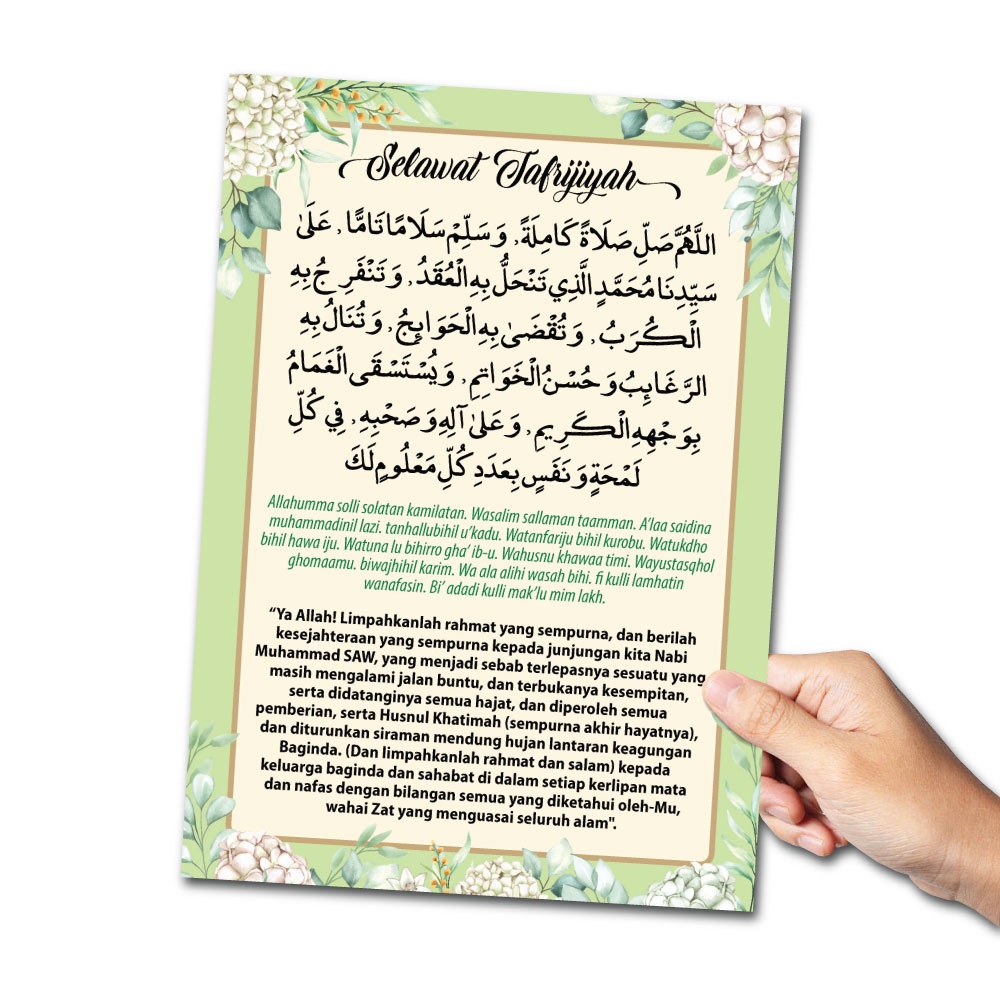 Selawat Tafrijiyah
اللَّهُمَّ صَلِّ صَلَاةً كَامِلَةً، وَسَلِّمْ سَلَامًا تَامًّا، عَلَىٰ
سَيِّدِنَا مُحَمَّدٍ الَّذِي تَنْحَلُّ بِهِ الْعُقَدُ، وَتَنْفَرِجُ بِهِ
الْكُرَبُ، وَتُقْضَىٰ بِهِ الْحَوَائِجُ، وَتُنَالُ بِهِ
الرَّغَائِبُ وَحُسْنُ الْخَوَاتِمِ، وَيُسْتَسْقَى الْغَمَامُ
بِوَجْهِهِ الْكَرِيمِ، وَعَلَىٰ آلِهِ وَصَحْبِهِ، فِي كُلِّ
لَمْحَةٍ وَنَفَسٍ بِعَدَدِ كُلِّ مَعْلُومٍ لَكَ
Allahumma solli solatan kamilatan. Wasalim sallaman taamman. A'laa saidina
muhammadinil lazi. tanhallubihil u'kadu. Watanfariju bihil kurobu. Watukdho
bihil hawa iju. Watuna lu bihirro gha' ib-u. Wahusnu khawaa timi. Wayustasqhol
ghomaamu. biwajhihil karim. Wa ala alihi wasah bihi. fi kulli lamhatin
wanafasin. Bi' adadi kulli mak'lu mim lakh.
“Ya Allah! Limpahkanlah rahmat yang sempurna, dan berilah
kesejahteraan yang sempurna kepada junjungan kita Nabi
Muhammad SAW, yang menjadi sebab terlepasnya sesuatu yang
masih mengalami jalan buntu, dan terbukanya kesempitan,
serta didatanginya semua hajat, dan diperoleh semua
pemberian, serta Husnul Khatimah (sempurna akhir hayatnya),
dan diturunkan siraman mendung hujan lantaran keagungan
Baginda. (Dan limpahkanlah rahmat dan salam) kepada
keluarga baginda dan sahabat di dalam setiap kerlipan mata
dan nafas dengan bilangan semua yang diketahui oleh-Mu,
wahai Zat yang menguasai seluruh alam".